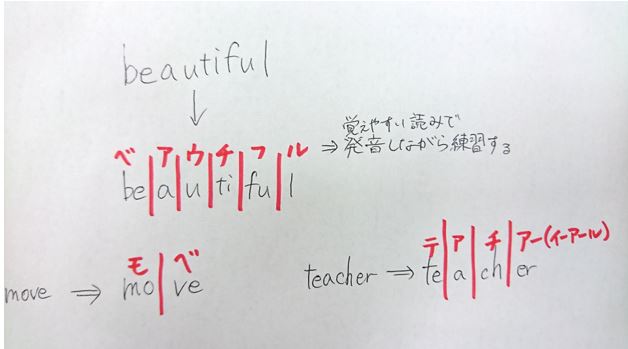 beautiful
↓
覚えやすい読みで
ベ|ア|ウ|チ|フ|ル ⇒ 発音しながら練習する
be|a|u|ti|fu|l
モ|ベ
move ⇒ mo|ve
テ|ア|チ|アー(イーアール)
teacher ⇒ te|a|ch|er